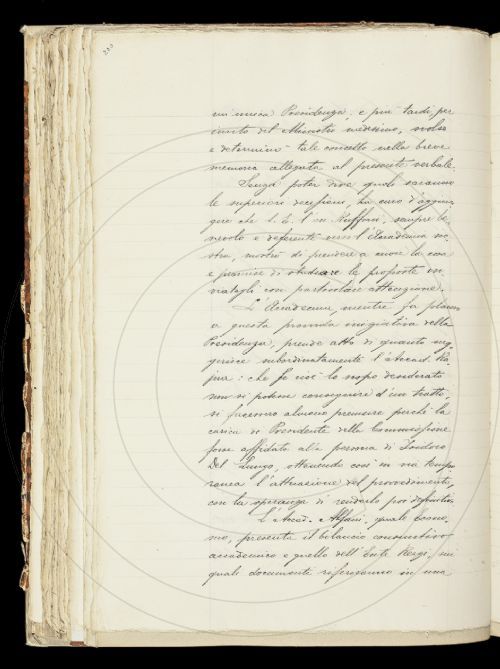 un'unica Presidenza; e più tardi, per
invito del Ministro medesimo, svolse
e determinò tale concetto nella breve
memoria allegata al presente verbale.
Senza poter dire quali saranno
le superiori decisioni, ha cura d'aggiun
gere che S. E. l'on Ruffini, sempre be
nevolo e deferente verso l'Accademia no
stra, mostrò di prendere a cuore la cosa
e promise di studiare le proposte in
viategli con particolare attenzione.
L'Accademia, mentre fa plauso
a questa provvida iniziativa della
Presidenza, prende atto di quanto sug
gerisce subordinatamente l'Accad. Ra
jna: che se cioè lo scopo desiderato
non si potesse conseguire d'un tratto,
si facessero almeno premure perchè la
carica di Presidente della Commissione
fosse affidata alla persona di Isidoro
Del Lungo, ottenendo così in via tempo
ranea l'attuazione del provvedimento,
con la speranza di renderlo poi definitivo.
L'Accad. Alfani, quale Econo
mo, presenta il bilancio consuntivo
accademico e quello dell'Ente Rezzi, i
quali documenti riferiranno in una